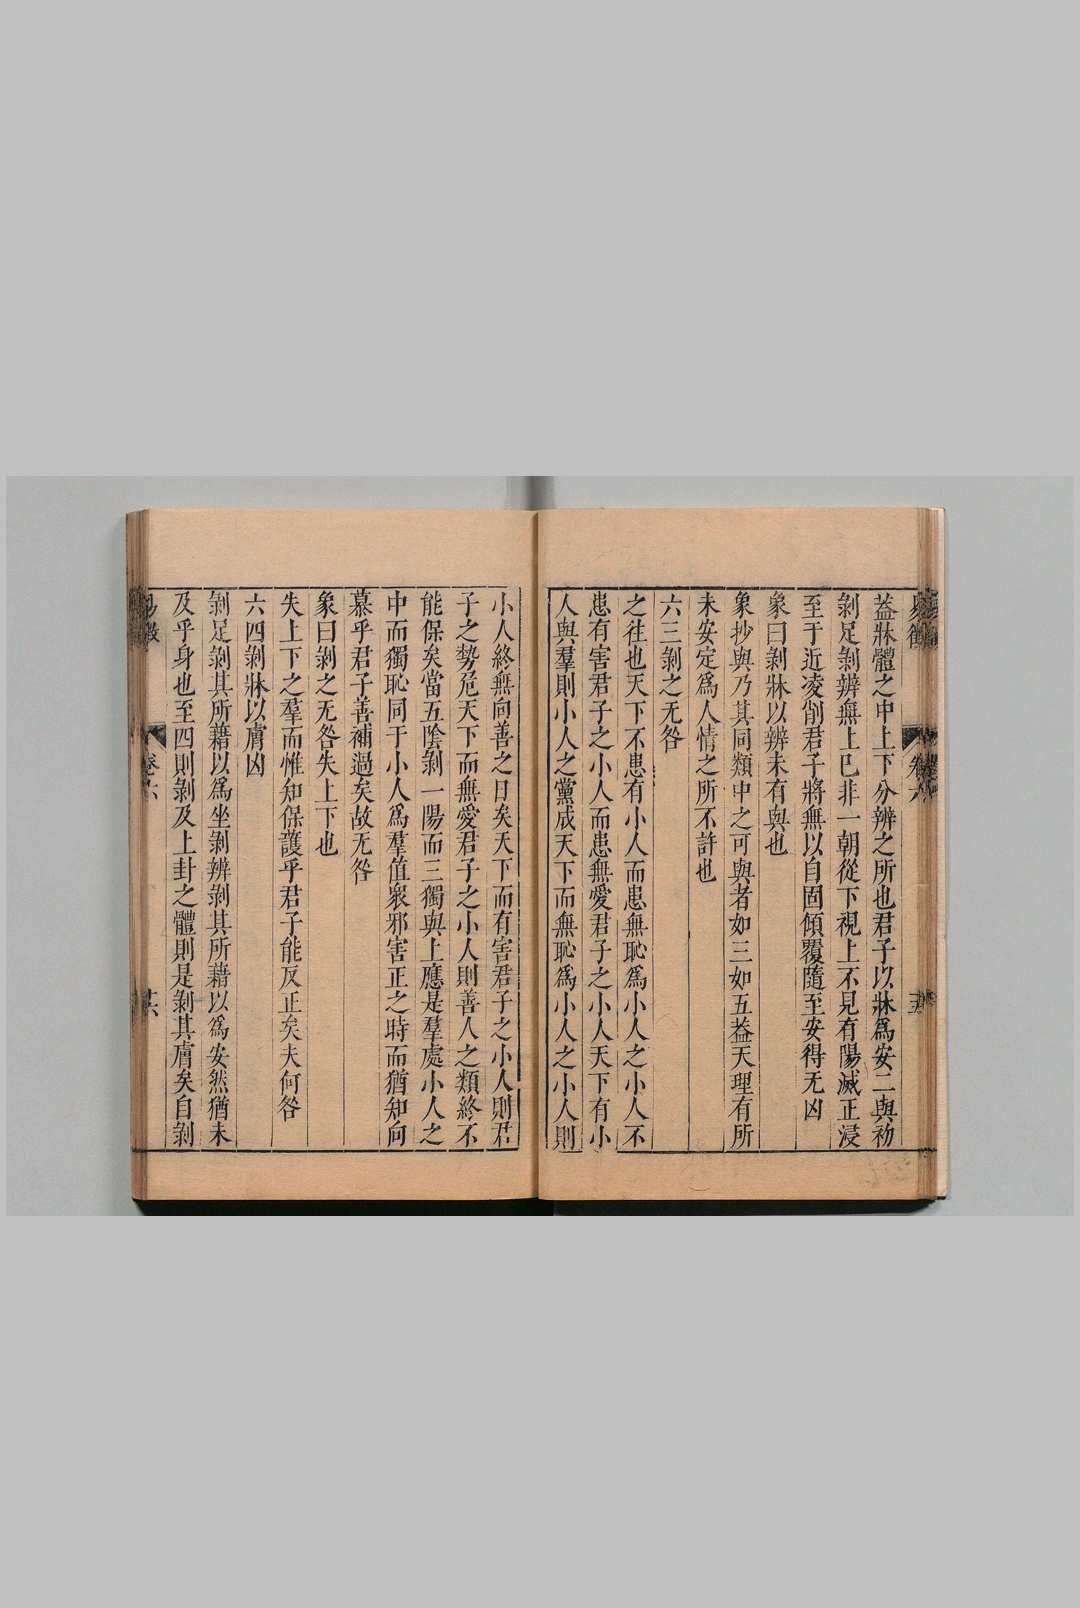 葢牀體之中上下分辨之所也君子以牀爲安二與初
剝足剝辨無上已非一朝從下視上不見有陽滅正浸
至于近凌削君子將無以自固傾覆隨至安得无凶
象曰剝牀以辨未有與也
象抄與乃其同類中之可與者如三如五葢天理有所
未安定爲人情之所不許也
六三剝之无咎
之往也天下不患有小人而患無恥爲小人之小人不
患有害君子之小人而患無愛君子之小人天下有小
人與羣則小人之黨成天下而無恥爲小人之小人則
小人終無向善之日矣天下而有害君子之小人則君
子之勢危天下而無愛君子之小人則善人之類終不
能保矣當五陰剝一陽而三獨與上應是羣處小人之
中而獨恥同于小人爲羣值衆邪害正之時而猶知向
慕乎君子善補過矣故无咎
象曰剝之无咎失上下也
失上下之羣而惟知保護乎君子能反正矣夫何咎
六四剝牀以膚凶
剝足剝其所藉以爲坐剝辨剝其所藉以爲安然猶未
及乎身也至四則剝及上封之體則是剝其膚矣自剝
卷六
卄六